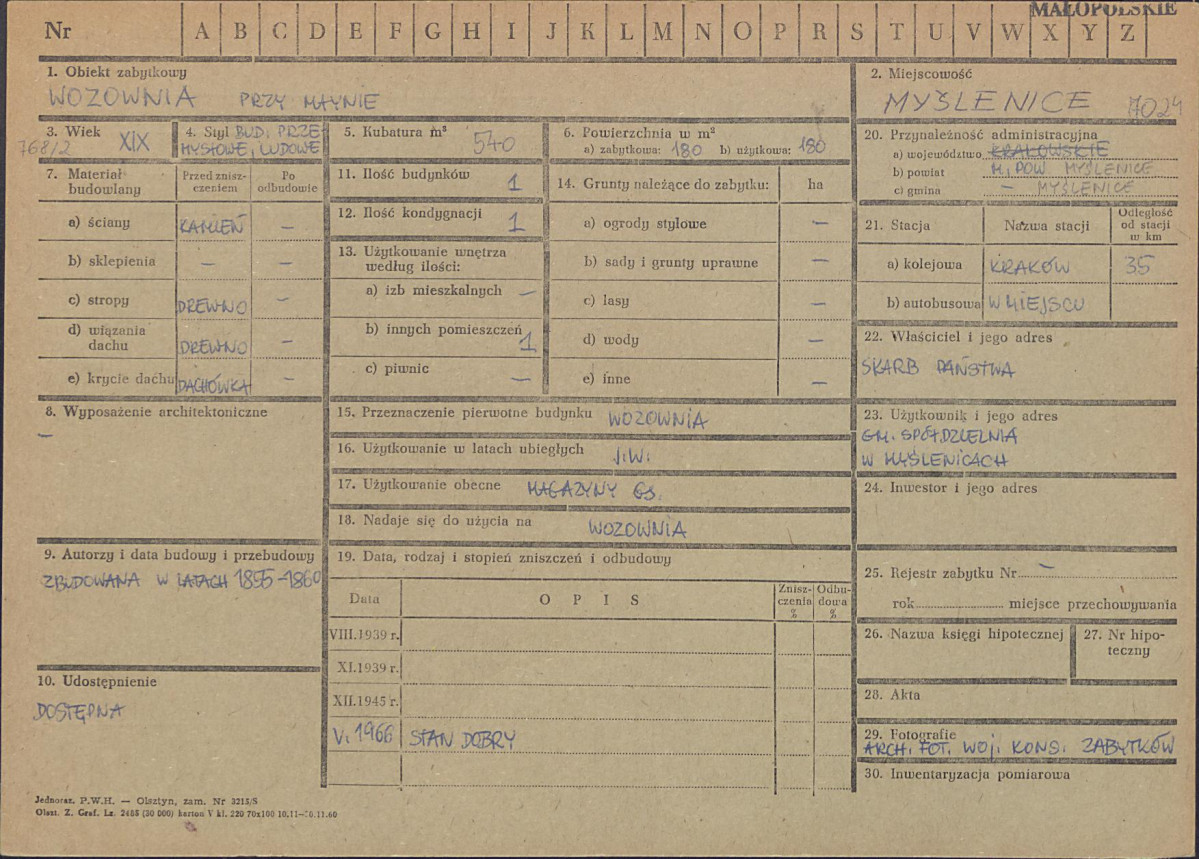 MAŁOPOLSKIE
Nr A B C D E F G H I J K L M N O P R S T U V W X Y Z
1. Obiekt zabytkowy
WOZOWNIA PRZY MŁYNIE
2. Miejscowość
MYŚLENICE 7024
3. Wiek XIX
768/2
4. Styl BUD. PRZE
MYSŁOWE, LUDOWE
5. Kubatura m³ 540
6. Powierzchnia w m²
a) zabytkowa: 180 b) użytkowa: 180
20. Przynależność administracyjna
a) województwo KRAKOWSKIE
b) powiat M. POW. MYŚLENICE
c) gmina — MYŚLENICE
7. Materiał
budowlany
Przed znisz-
czeniem
Po
odbudowie
a) ściany KAMIEŃ —
b) sklepienia — —
c) stropy DREWNO —
d) wiązania
dachu DREWNO —
e) krycie dachu DACHÓWKA —
11. Ilość budynków 1
12. Ilość kondygnacji 1
13. Użytkowanie wnętrza
według ilości:
a) izb mieszkalnych —
b) innych pomieszczeń 1
c) piwnic —
14. Grunty należące do zabytku: ha
a) ogrody stylowe —
b) sady i grunty uprawne —
c) lasy —
d) wody —
e) inne —
21. Stacja Nazwa stacji
Odległość
od stacji
w km
a) kolejowa KRAKÓW 35
b) autobusowa W MIEJSCU
22. Właściciel i jego adres
SKARB PAŃSTWA
8. Wyposażenie architektoniczne
—
15. Przeznaczenie pierwotne budynku WOZOWNIA
16. Użytkowanie w latach ubiegłych J.W.
17. Użytkowanie obecne MAGAZYNY GS.
18. Nadaje się do użycia na WOZOWNIA
23. Użytkownik i jego adres
GM. SPÓŁDZIELNIA
W MYŚLENICACH
24. Inwestor i jego adres
9. Autorzy i data budowy i przebudowy
ZBUDOWANA W LATACH 1855-1860
19. Data, rodzaj i stopień zniszczeń i odbudowy
Data OPIS
Znisz-
czenia
%
Odbu-
dowa
%
VIII.1939 r.
XI.1939 r.
XII.1945 r.
V. 1966 STAN DOBRY
25. Rejestr zabytku Nr —
rok miejsce przechowywania
26. Nazwa księgi hipotecznej
27. Nr hipo-
teczny
10. Udostępnienie
DOSTĘPNA
28. Akta
29. Fotografie
ARCH. FOT. WOJ. KONS. ZABYTKÓW
30. Inwentaryzacja pomiarowa
Jednoraz. P.W.H. — Olsztyn, zam. Nr 3215/S
Olszt. Z. Graf. Lz. 2485 (30 000) karton V kl. 220 70x100 10.11—30.11.60